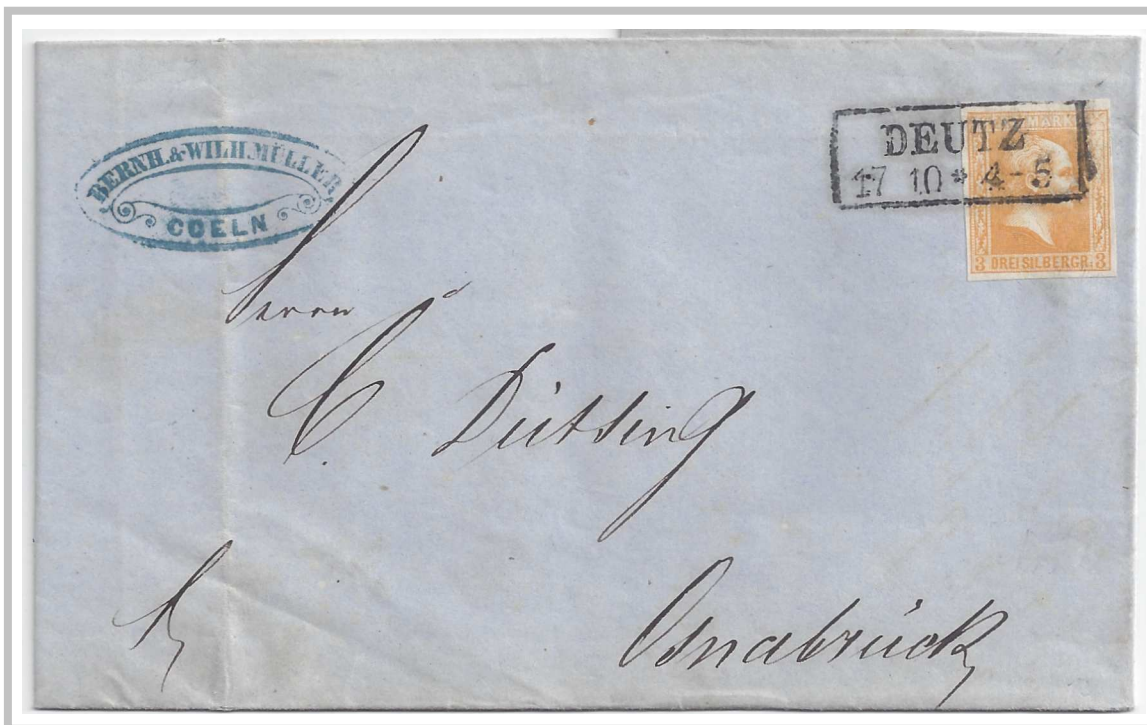 BERNH. & WILH. MÜLLER
COELN
DEUTZ
17 10 * 4-5
MARK
3 DREI SILBERGR. 3
Herrn
C. Dütting
Osnabrück